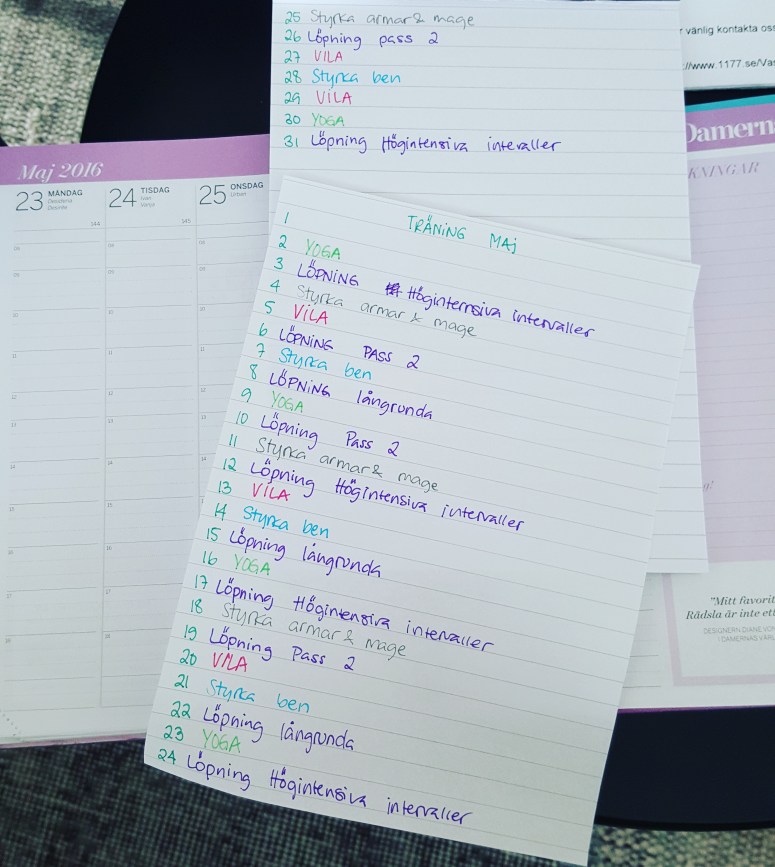 25 Styrka armar & mage
26 Löpning pass 2
27 VILA
28 Styrka ben
29 VILA
30 YOGA
31 Löpning Högintensiva intevaller
r vänlig kontakta oss
://www.1177.se/Vas
Damerna
KNINGAR
Maj 2016
23 MÅNDAG
24 TISDAG
25 ONSDAG
Urban
144
145
1 TRÄNING MAJ
2 YOGA
3 LÖPNING Höginternsiva intervaller
4 Styrka armar & mage
5 VILA
6 LÖPNING PASS 2
7 Styrka ben
8 LÖPNING långrunda
9 YOGA
10 Löpning Pass 2
11 Styrka armar & mage
12 Löpning Högintensiva intervaller
13 VILA
14 Styrka ben
15 Löpning långrunda
16 YOGA
17 Löpning Högintensiva intervaller
18 Styrka armar & mage
19 Löpning Pass 2
20 VILA
21 Styrka ben
22 Löpning långrunda
23 YOGA
24 Löpning Högintensiva intervaller
"Mitt favorit
Rädsla är inte ett
DESIGNERN DIANE VON
I DAMERNAS VÄRL